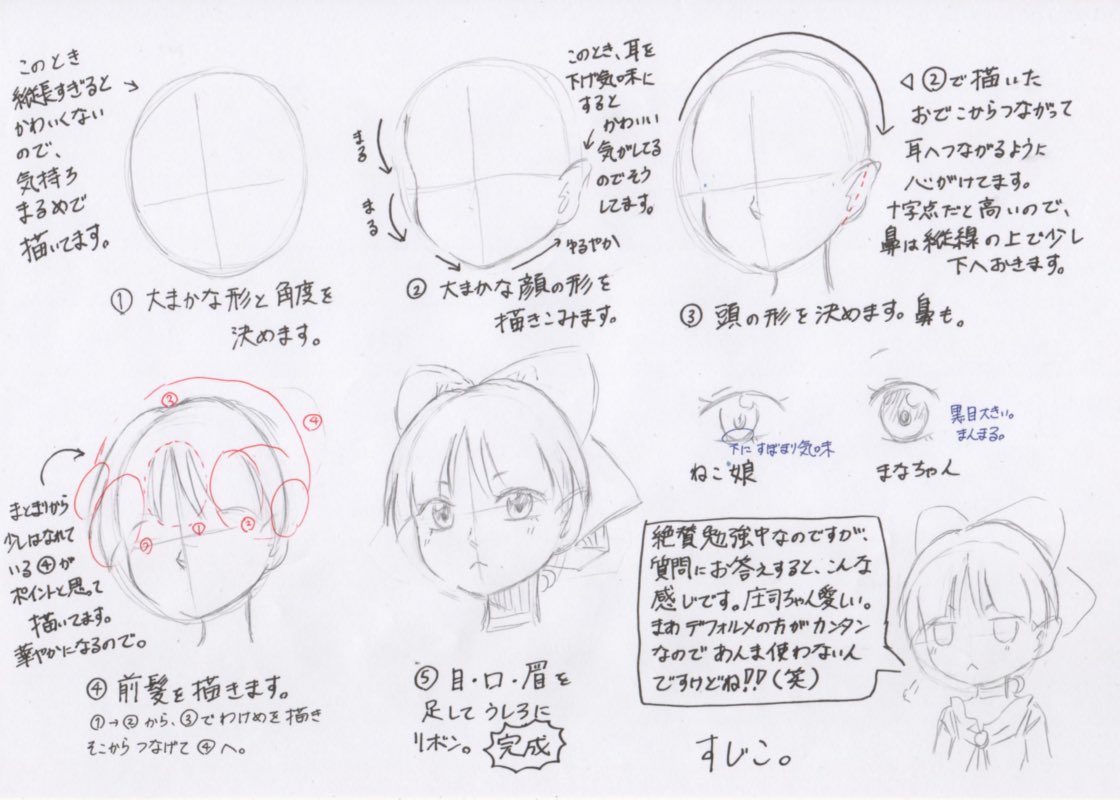 このとき
縦長すぎると
かわいくない
ので、
気持ち
まるめで
描いてます。
① 大まかな形と角度を
決めます。
まる
まる
このとき、耳を
下げ気味に
すると
かわいい
気がしてる
のでそう
してます。
ゆるやか
② 大まかな顔の形を
描きこみます。
◁ ②で描いた
おでこからつながって
耳へつながるように
心がけてます。
十字点だと高いので、
鼻は縦線の上で少し
下へおきます。
③ 頭の形を決めます。鼻も。
③
④
①
②
②
まとまりから
少しはなれて
いる④が
ポイントと思って
描いてます。
華やかになるので。
④ 前髪を描きます。
①→②から、③でわけめを描き
そこからつなげて④へ。
⑤ 目・口・眉を
足してうしろに
リボン。 完成
下にすぼまり気味
ねこ娘
黒目大きい。
まんまる。
まなちゃん
絶賛勉強中なのですが、
質問にお答えすると、こんな
感じです。庄司ちゃん愛しい。
まあデフォルメの方がカンタン
なのであんま使わないん
ですけどね!!(笑)
すじこ。